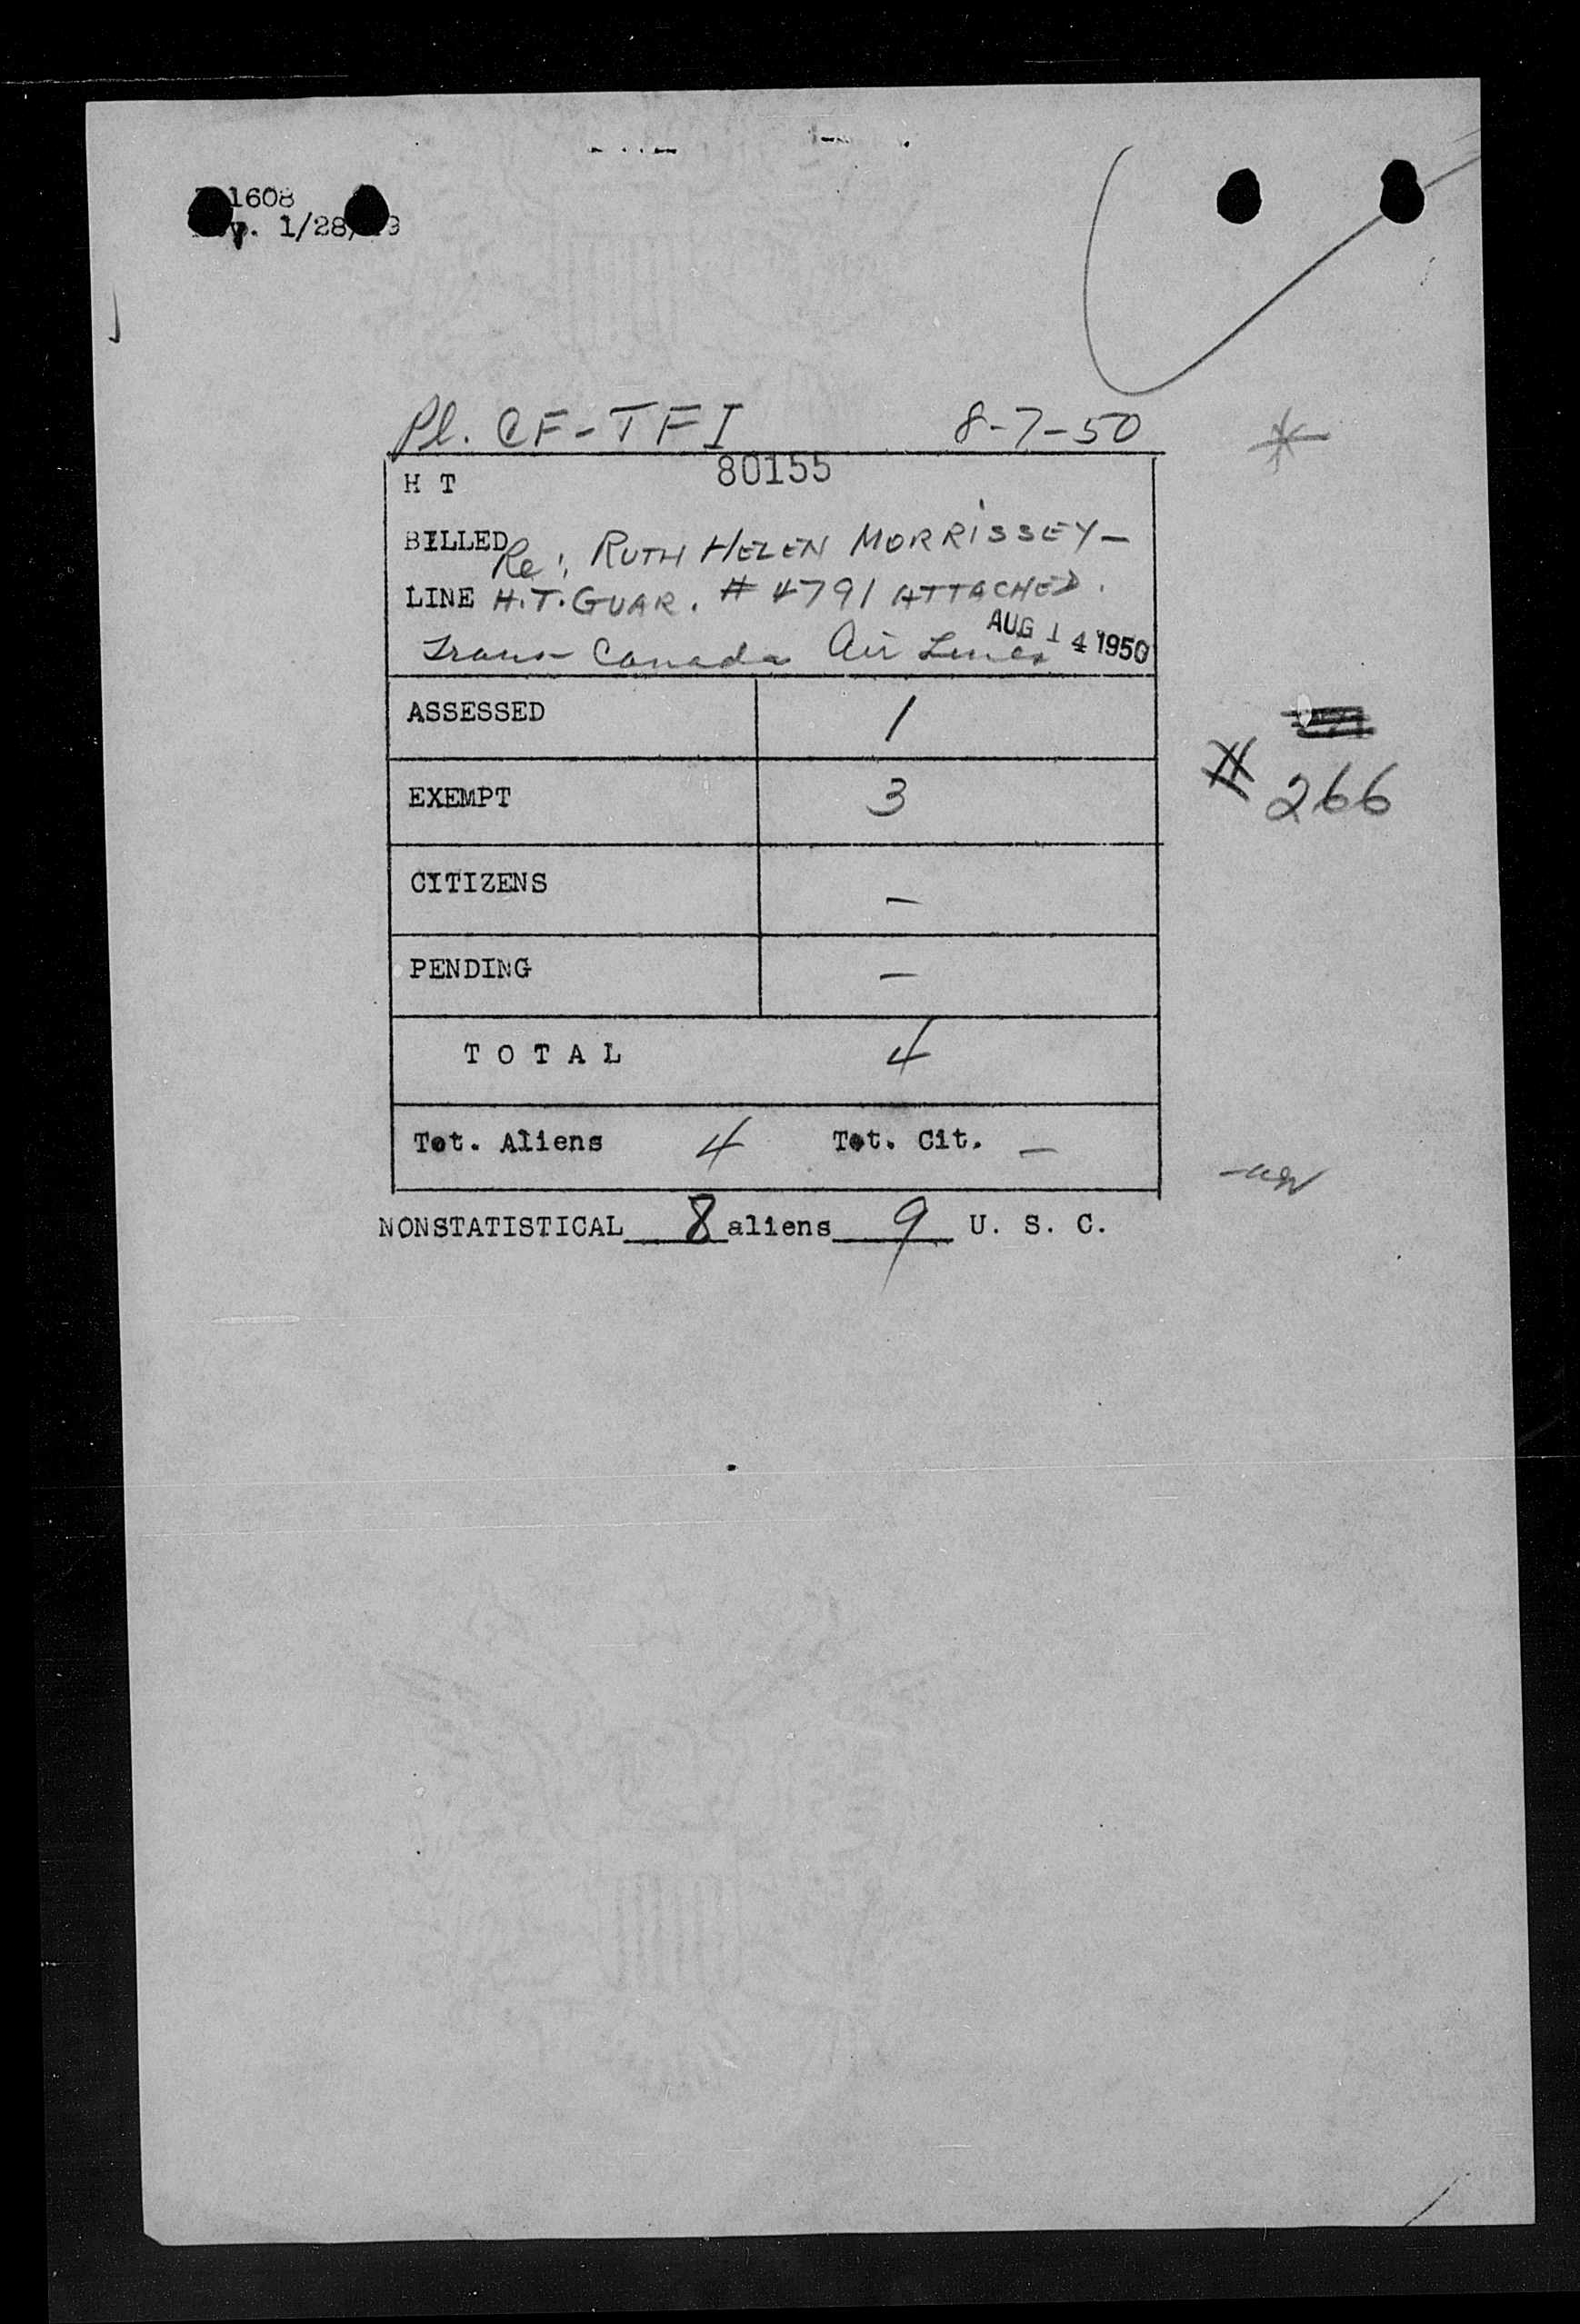 1608
1/28/
Pl. CF-TFI 8-7-50
H T 80155
BILLED Re: RUTH HELEN MORRISSEY-
LINE H.T. GUAR. # 4791 ATTACHED.
AUG 14 1950
Trans-Canada Air Lines
ASSESSED 1
EXEMPT 3
# 266
CITIZENS -
PENDING -
TOTAL 4
Tot. Aliens 4 Tot. Cit. -
NONSTATISTICAL 8 aliens 9 U. S. C.